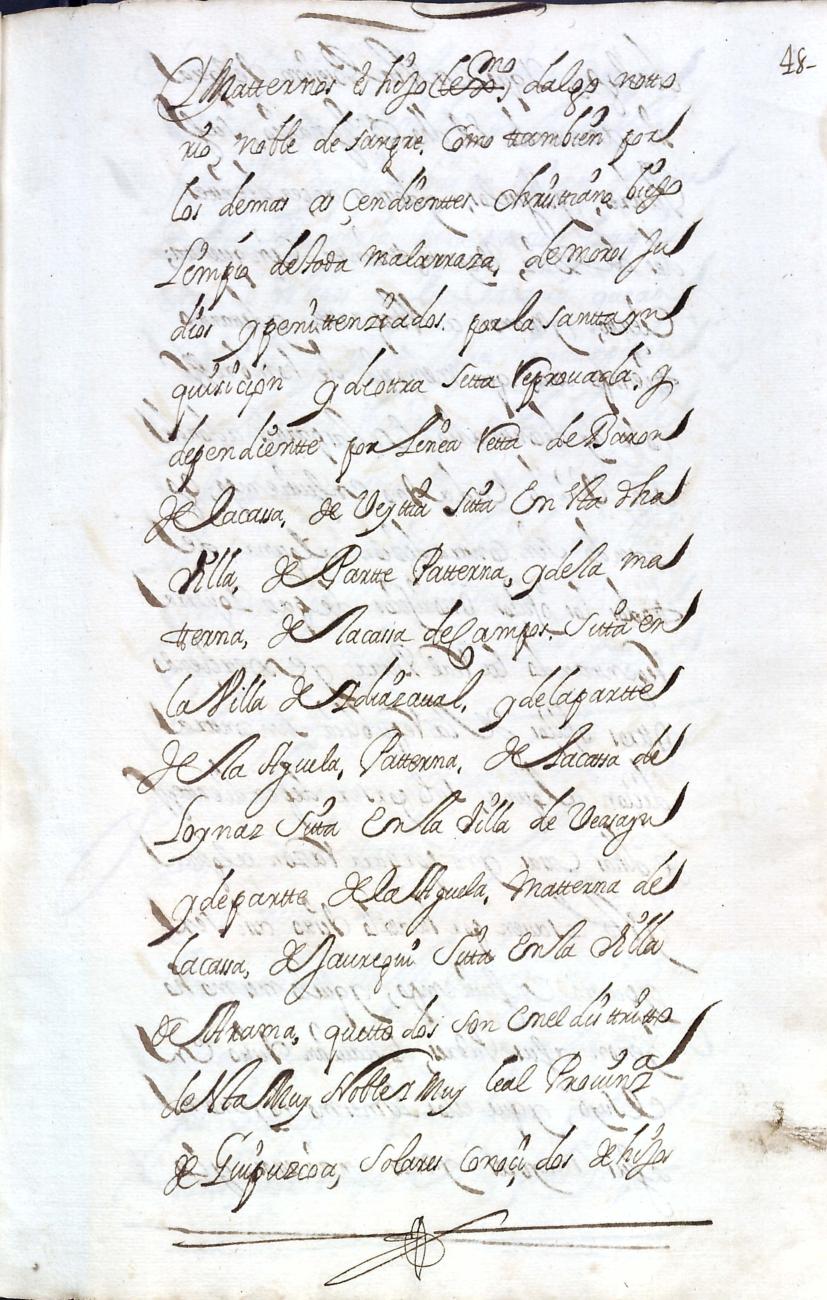 48-
Matternos es hijo (de Pº) mo dalgo notto
rio, noble de sangre. Como ttambien por
los demas as çendienttes. Christiano biejo
Lempio de toda malarraza, de moros Ju
dios y penittenziados. por la santta yn
quisiçion y de ottra setta Reprouada, y
dependientte por Linea Retta de Baron
de la cassa, de Veytia sita En Vta dha
Villa, de Partte Patterna, y de la ma
tterna, de la cassa de Campos. sita en
la Villa de Ydiazaual, y de la partte
de la Aguela, Patterna, de la cassa de
Loynaz sita En la Villa de Veasayn
y de partte de la Aguela, Matterna de
la cassa, de Jauregui sita En la Villa
de Arama, que tto dos son En el disttritto
de Vta Muy Noble Y Muy Leal Prouinza
de Guipuzcoa, solares Conoçi dos de hijos